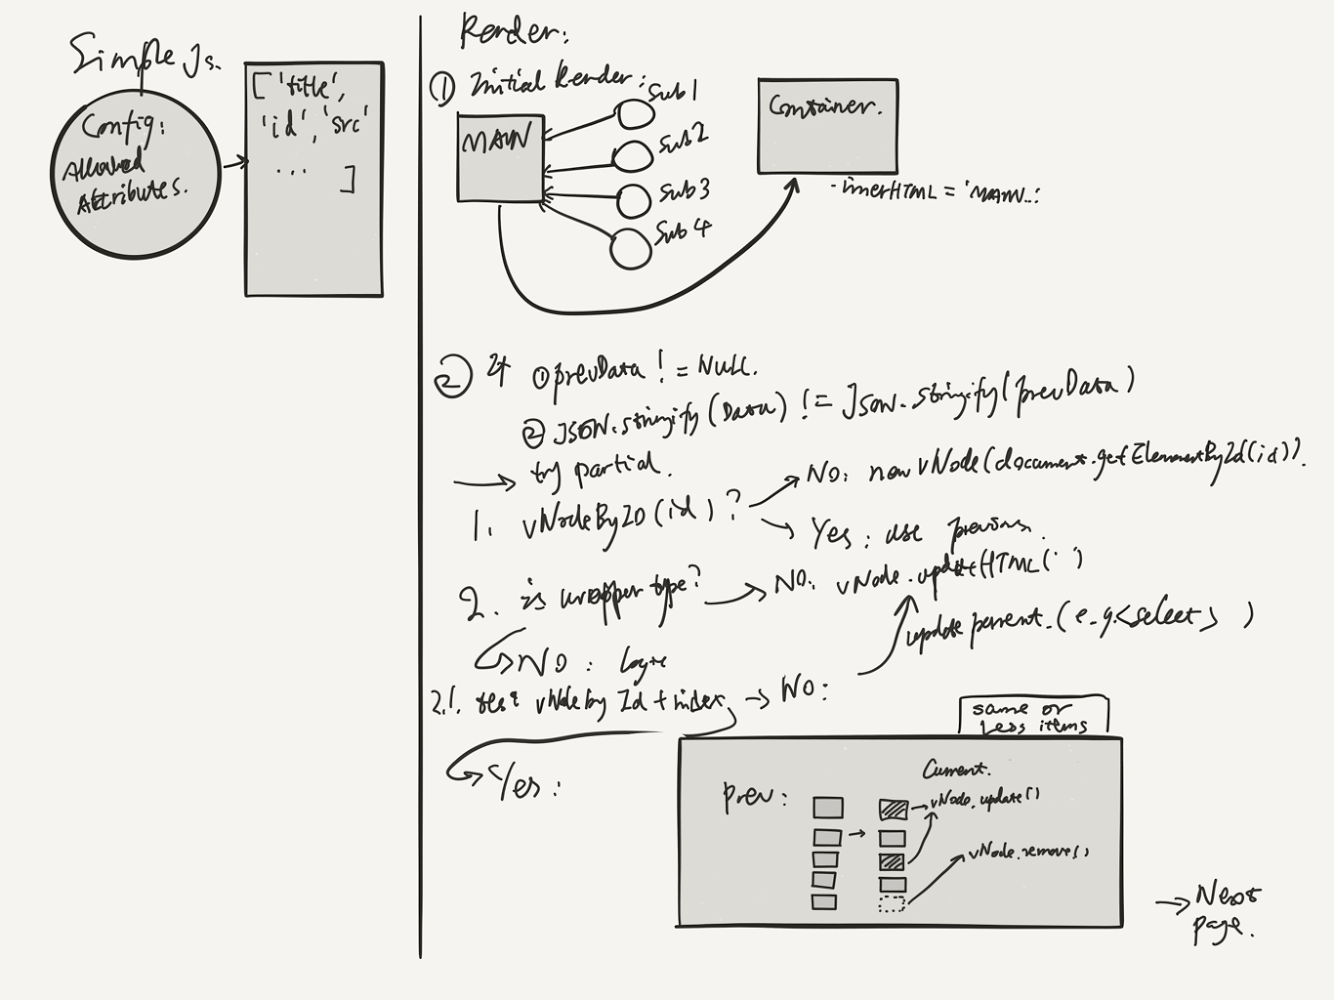 Simple Js.
Config:
Allowed
Attributes.
['title',
'id', 'src'
... ]
Render:
① Initial Render:
MAIN
Sub 1
Sub 2
Sub 3
Sub 4
Container.
·innerHTML = 'MAIN..'
② If ① prevData != Null.
② JSON.stringify(Data) != JSON.stringify(prevData)
→ try partial.
1. vNodeById(id)?
No: new vNode(document.getElementById(id)).
Yes: use previous.
2. is wrapper type?
NO: vNode.updateHTML(' ')
update parent.(e.g.<select> )
NO :
2.1. vNode by Id + index → NO:
Yes:
same or
Less items
Prev:
Current.
vNode.update()
vNode.remove()
→ Next
page.